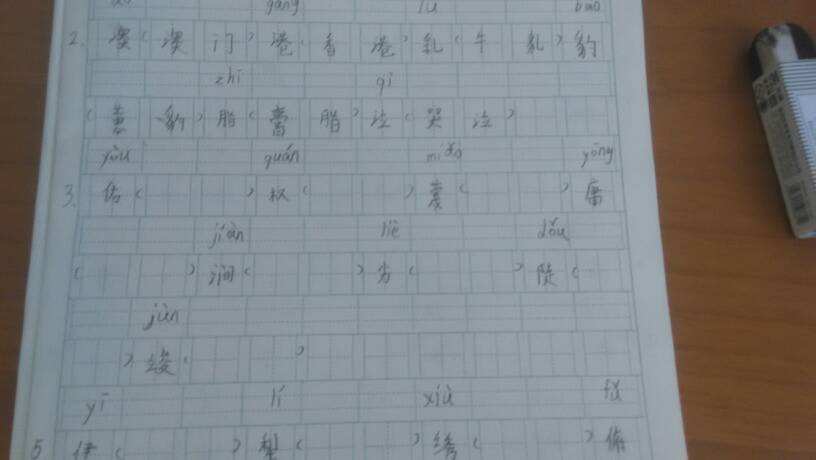 gǎng rǔ bào
2. 澳（澳门）港（香港）乳（牛乳）豹
zhī qì
（ 豹）脂（膏脂）泣（哭泣）
yòu quán miǎo yōng
3. 佑（ ）权（ ） （ ）庸
jiàn liè dǒu
（ ）涧（ ）劣（ ）陡（
jùn
）竣（ ）
yī lí xiù
5 伊（ ）犁（ ）绣（ ）